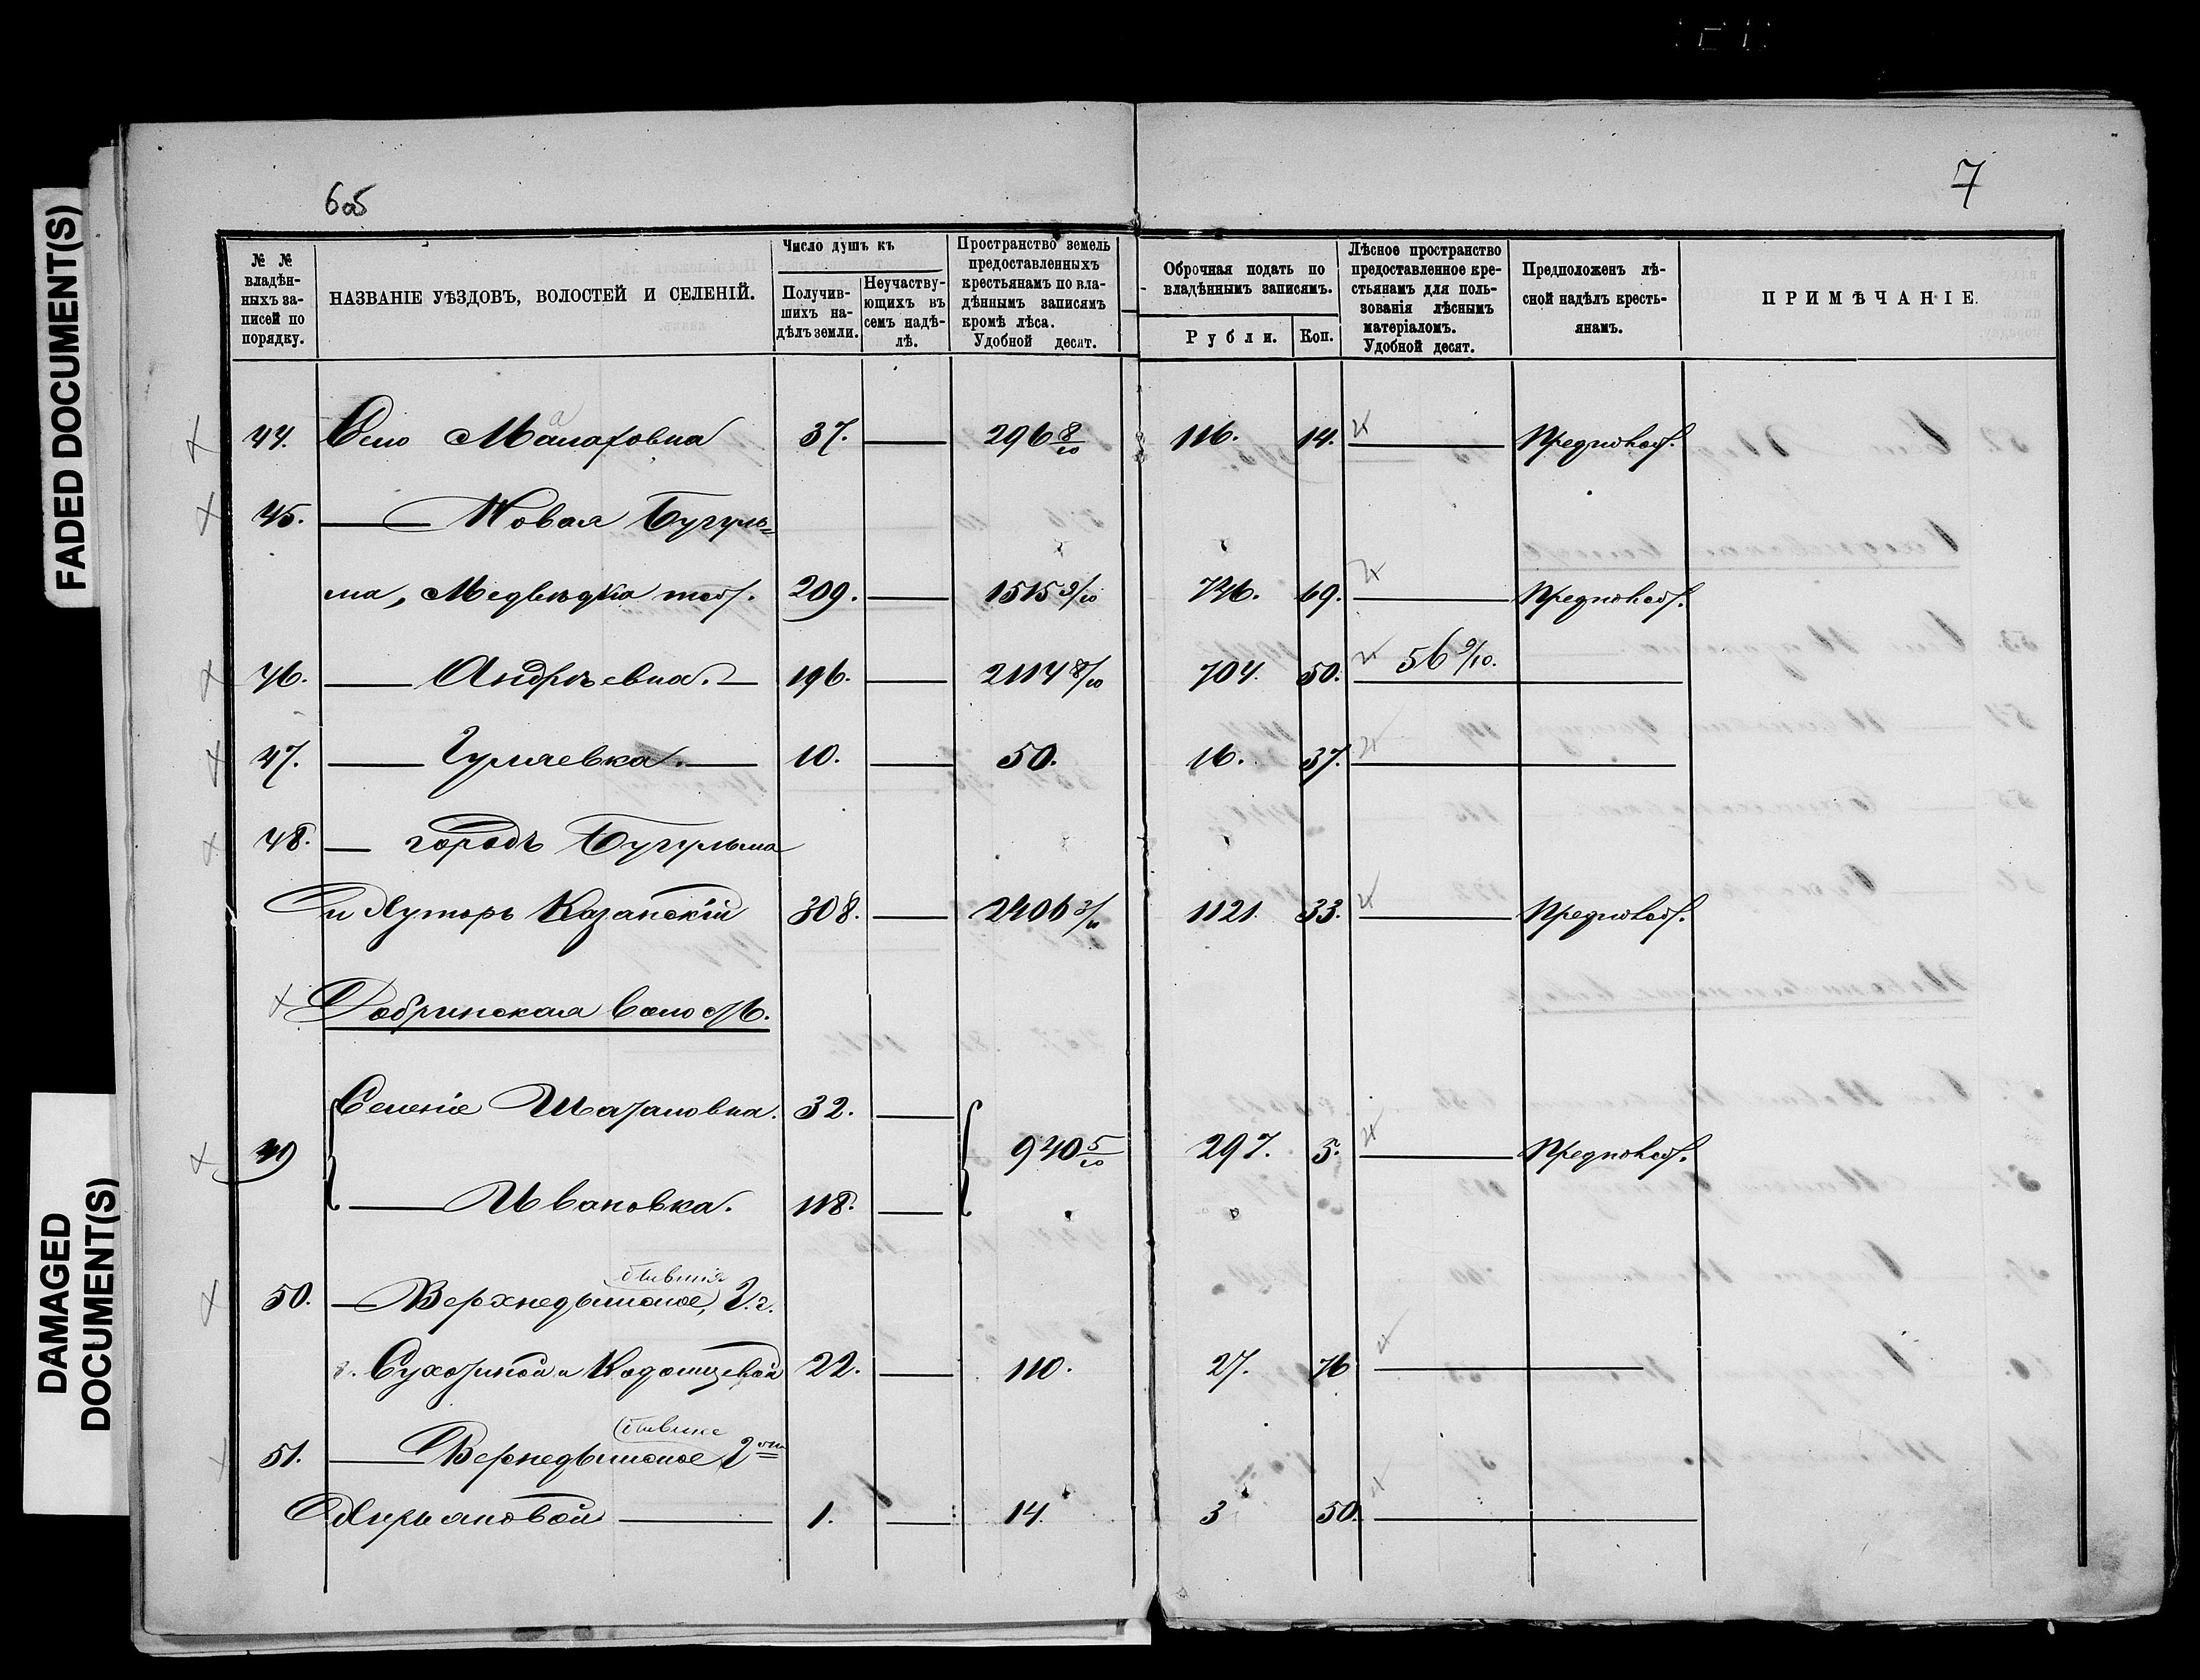 FADED DOCUMENT(S)
DAMAGED DOCUMENT(S)
6об
7
№ № владѣнныхъ записей по порядку.
НАЗВАНІЕ УѢЗДОВЪ, ВОЛОСТЕЙ И СЕЛЕНІЙ.
Число душъ къ
Получившихъ надѣлъ земли.
Неучаствующихъ въ семъ надѣлѣ.
Пространство земель предоставленныхъ крестьянамъ по владѣннымъ записямъ кромѣ лѣса. Удобной десят.
Оброчная подать по владѣннымъ записямъ.
Рубли. Коп.
Лѣсное пространство предоставленное крестьянамъ для пользованія лѣснымъ матеріаломъ. Удобной десят.
Предположенъ лѣсной надѣлъ крестьянамъ.
ПРИМѢЧАНІЕ.
44. Село Малаховка 37. — 296 8/10 116. 14. — Предполож.
45. — Новая Бугуль=
ма, Медвѣдка тож. 209. — 1515 9/10 746. 69. — Предполож.
46. — Андрѣевка. — 196. — 2114 8/10 704. 50. 56 9/10.
47. — Гуляевка. — 10. — 50. 16. 37. —
48. — городъ Бугульма
и Хуторъ Казанскій 308. — 2406 3/10 1121. 33. — Предполож.
Добринская волость.
49 Селеніе Шаталовка. 32. — 940 5/10 297. 5. — Предполож.
— Ивановка. 118. —
50. — Верхнедымское, бывшія Г.г.
Сухозиной и 22. — 110. 27. 76 —
51. — Вернедымское бывшіе Г
1. — 14. 3 50. —